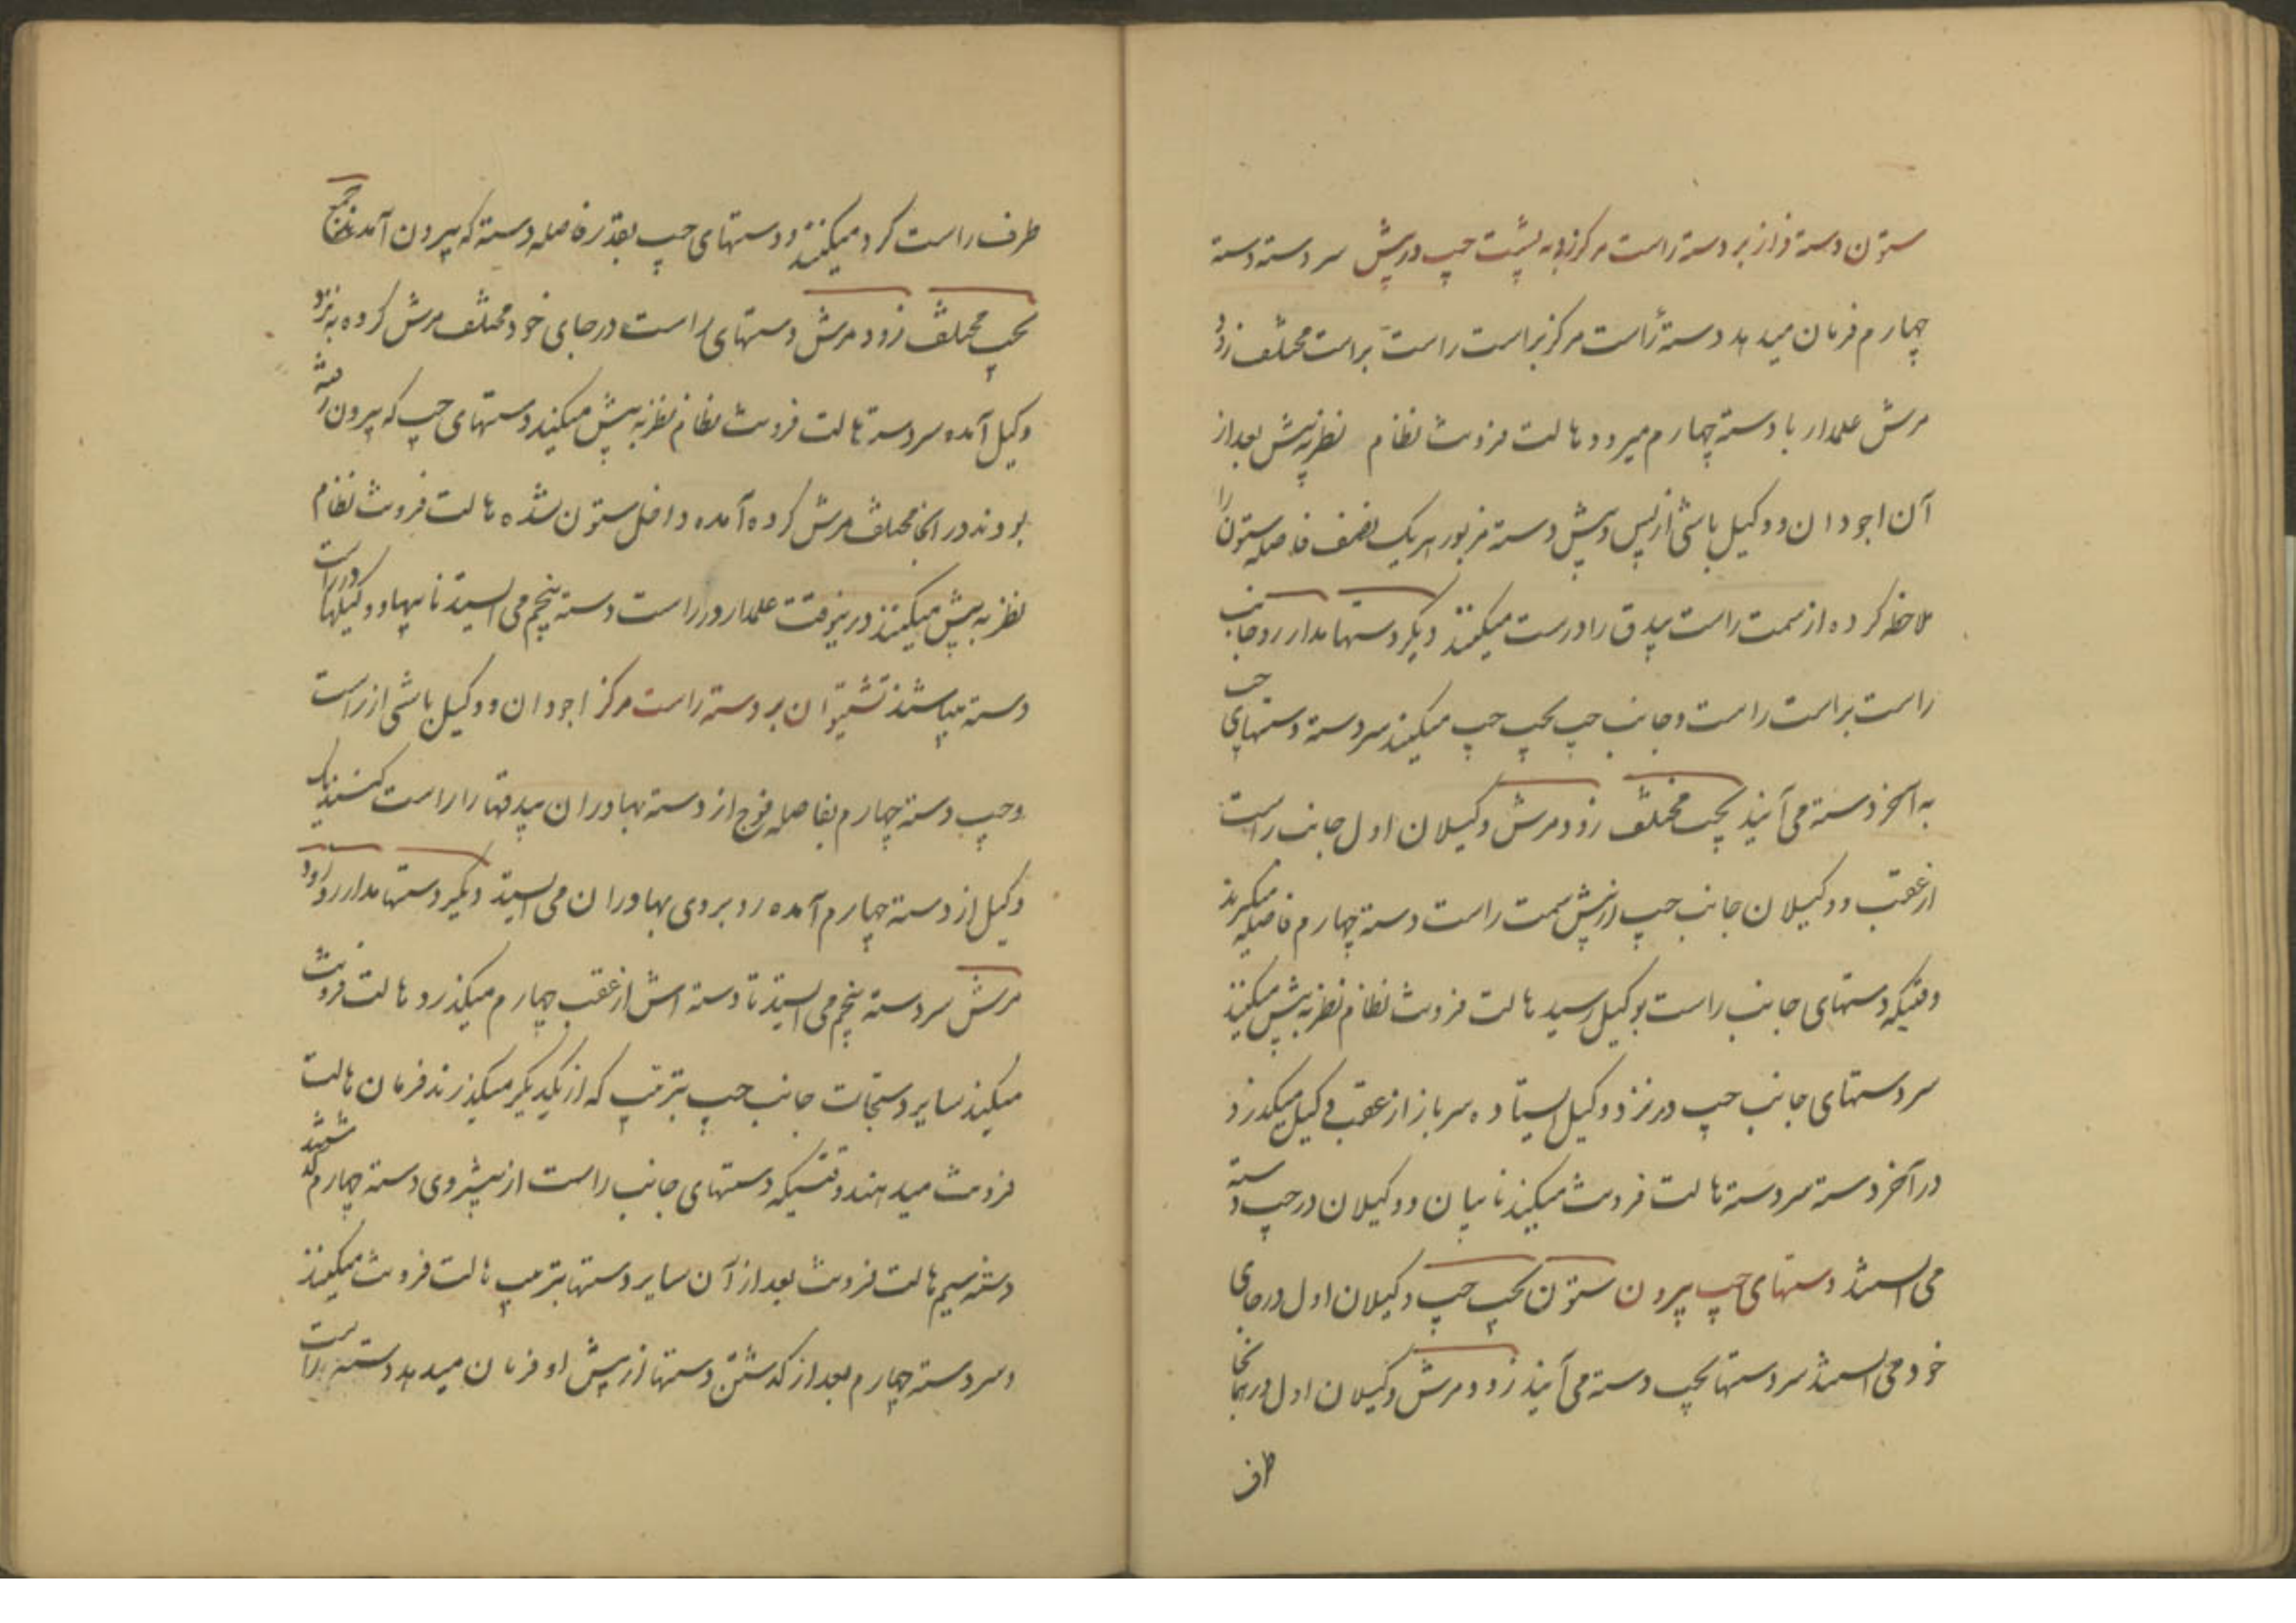 ستون دسته واز بر دسته راست مرکز به پشت چپ درپیش سر دسته دسته
چهارم فرمان میدهد دستۀ راست مرکز براست راست براست مختلف زود
مرش علمدار با دسته چهارم میرود هالت فرونت نظام نظر به پیش بعد از
آن اجودان و وکیل باشی از پس و پیش دسته مزبور هر یک نصف فاصله ستون را
ملاحظه کرده از سمت راست بیدق را درست میکنند دیگر دستها مدار رو جانب
راست براست راست و جانب چپ بچپ چپ میکنند سر دسته دستهای چپ
به آخر دسته می آیند بچپ مختلف زود مرش وکیلان اول جانب راست
از عقب و وکیلان جانب چپ از پیش سمت راست دسته چهارم فاصله میگیرند
وقتیکه دستهای جانب راست بوکیل رسید هالت فرونت نظام نظر به پیش میکنند
سر دستهای جانب چپ در نزد وکیل ایستاده سرباز از عقب وکیل میگذرد
در آخر دسته سر دسته هالت فرونت میکند نایبان و وکیلان در چپ دسته
می ایستند دستهای چپ بیرون ستون بچپ چپ وکیلان اول در جای
خود می ایستند سر دستها بچپ دسته می آیند زود مرش وکیلان اول در همانجا
طرف
طرف راست گرد میکنند و دستهای چپ بقدر فاصله دسته که بیرون آمدند
بچپ مختلف زود مرش دستهای راست در جای خود مختلف مرش کرده به نزد
وکیل آمده سر دسته هالت فرونت نظام نظر به پیش میکند دستهای چپ که بیرون رفته
بودند در آنجا مختلف مرش کرده آمده داخل ستون شده هالت فرونت نظام
نظر به پیش میکنند درین وقت علمدار در راست دسته پنجم می ایستد نایبها و وکیلها در راست
دسته میباشند بر دسته راست مرکز اجودان و وکیل باشی از راست
و چپ دسته چهارم بفاصله فوج از دسته بهادران بیدقها را راست کنند یک
وکیل از دسته چهارم آمده رو بروی بهادران می ایستد دیگر دستها مدار رو زود
مرش سر دسته پنجم می ایستد تا دسته اش از عقب چهارم میگذرد هالت فرونت
میکند سایر دستجات جانب چپ بترتیب که از یکدیگر میگذرند فرمان هالت
فرونت میدهند وقتیکه دستهای جانب راست از پیشروی دسته چهارم گذشتند
دسته سیم هالت فرونت بعد از آن سایر دستها بترتیب هالت فرونت میکنند
و سر دسته چهارم بعد از گذشتن دستها از پیش او فرمان میدهد دسته براست